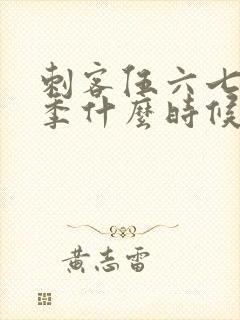 刺客伍六七
季什麼時候
黃志雷